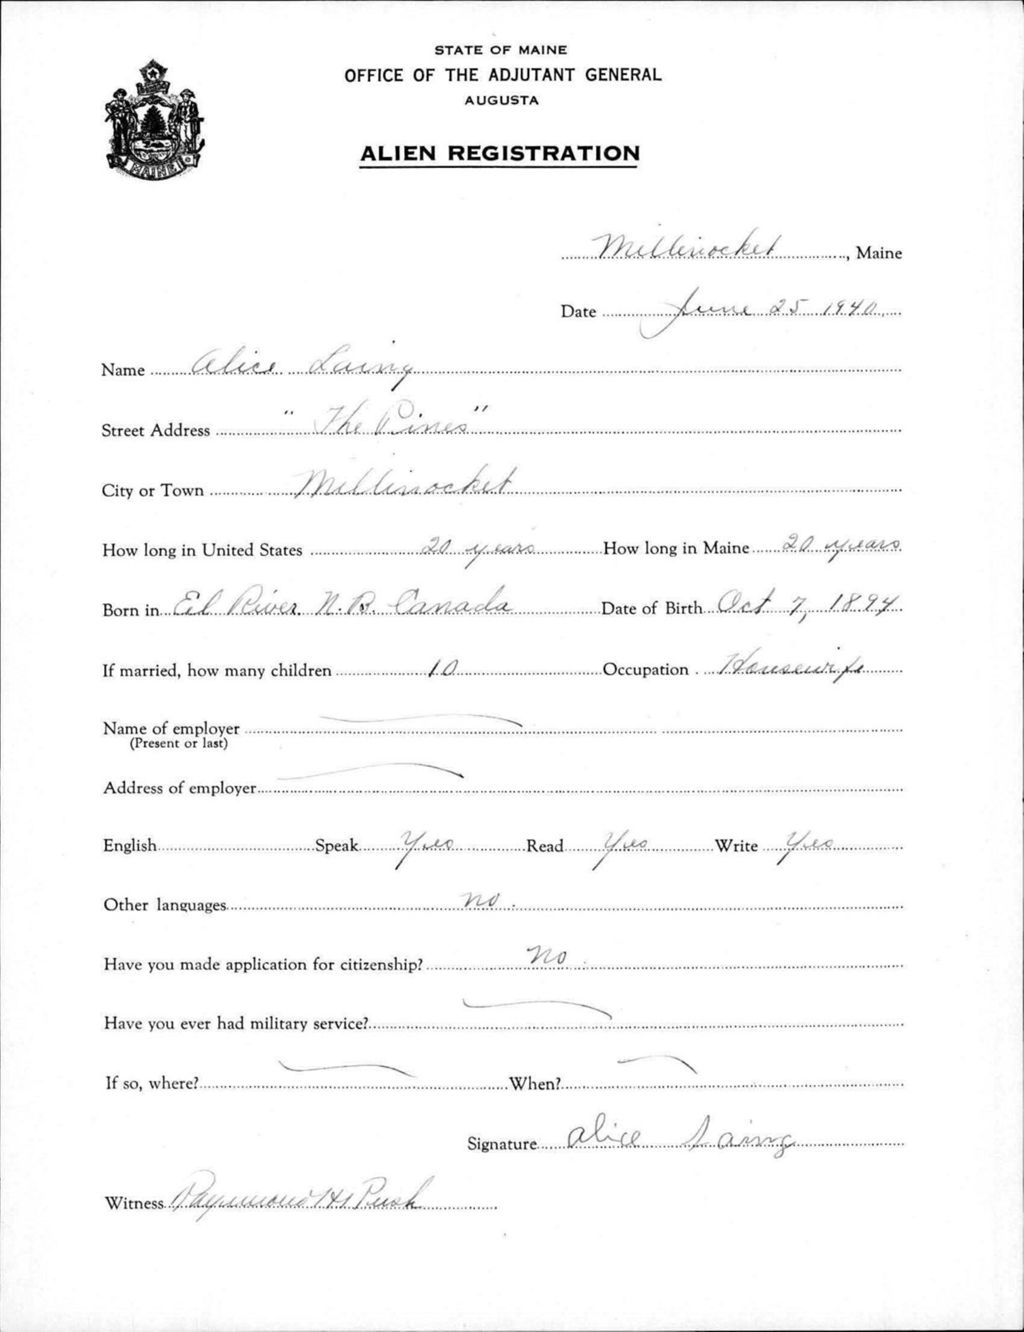 STATE OF MAINE
OFFICE OF THE ADJUTANT GENERAL
AUGUSTA
ALIEN REGISTRATION
MAINE
Millinocket, Maine
Date June 25 1940
Name Alice Laing
Street Address "The Pines"
City or Town Millinocket
How long in United States 20 years How long in Maine 20 years
Born in Eel River, N.B. Canada Date of Birth Oct 7, 1894
If married, how many children 10 Occupation Housewife
Name of employer
(Present or last)
Address of employer
English Speak Yes Read Yes Write Yes
Other languages no.
Have you made application for citizenship? No.
Have you ever had military service?
If so, where? When?
Signature Alice Laing
Witness Raymond H Rush